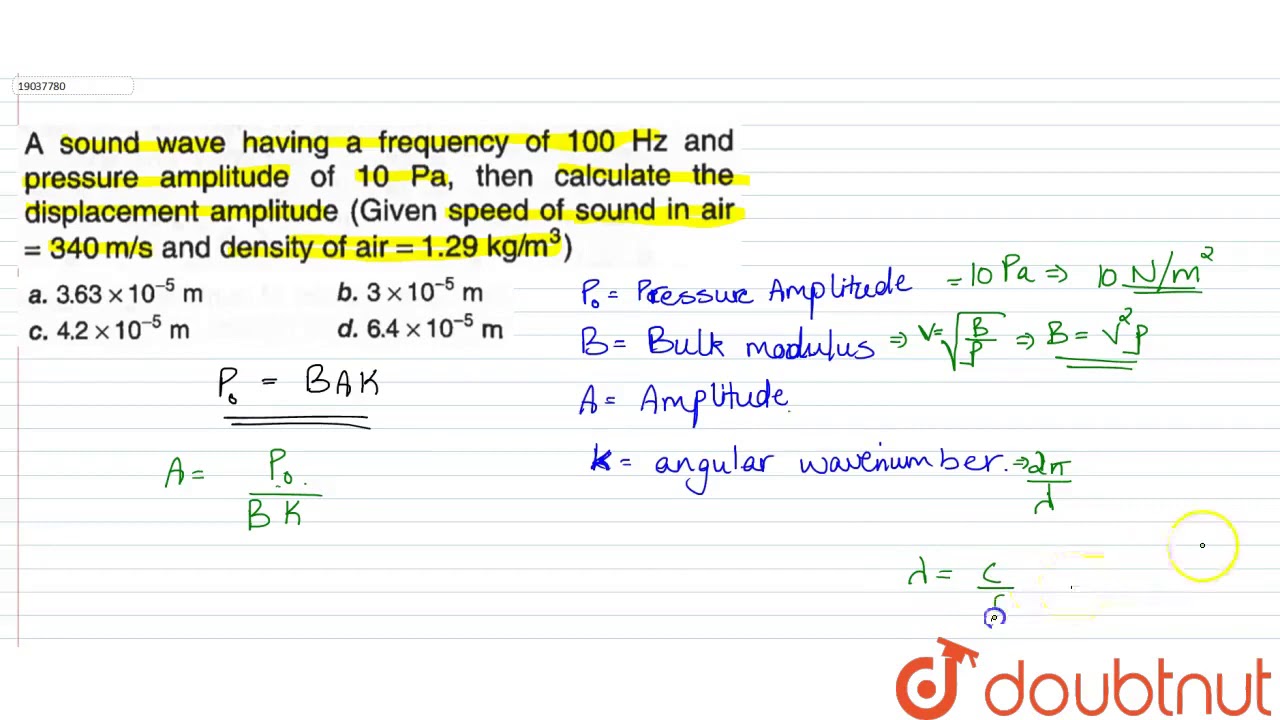 19037780
A sound wave having a frequency of 100 Hz and
pressure amplitude of 10 Pa, then calculate the
displacement amplitude (Given speed of sound in air
= 340 m/s and density of air = 1.29 kg/m³)
a. 3.63 × 10⁻⁵ m b. 3 × 10⁻⁵ m
c. 4.2 × 10⁻⁵ m d. 6.4 × 10⁻⁵ m
P₀ = BAK
A = P₀ / BK
P₀ = Pressure Amplitude = 10 Pa ⇒ 10 N/m²
B = Bulk modulus ⇒ V = √(B/ρ) ⇒ B = V²ρ
A = Amplitude.
K = angular wavenumber. ⇒ 2π/λ
λ = c/f
doubtnut